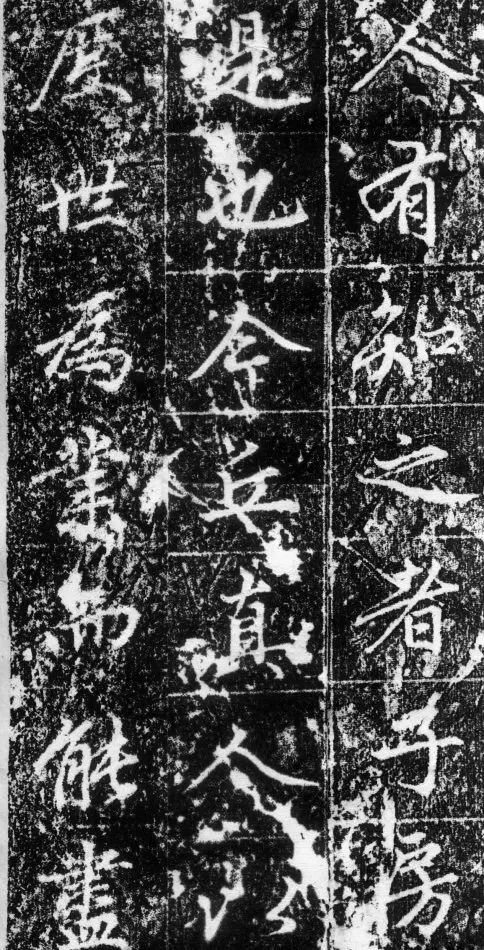 人有知之者子房
是也今丘真人以
歷世為業而能盡